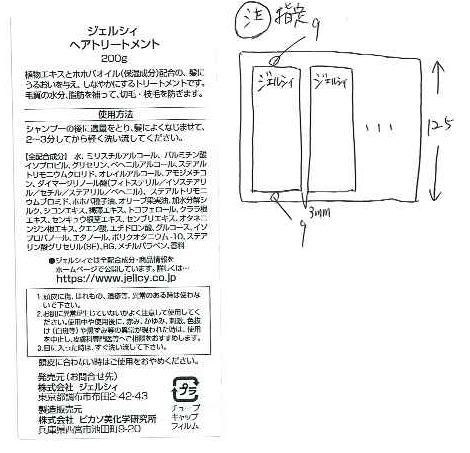 ジェルシィ
ヘアトリートメント
200g
植物エキスとホホバオイル(保湿成分)配合の、髪に
うるおいを与え、しなやかにするトリートメントです。
毛質の水分、脂肪を補って、切毛・枝毛を防ぎます。
使用方法
シャンプーの後に適量をとり、髪によくなじませて、
2〜3分してから軽く洗い流してください。
【全配合成分】水、ミリスチルアルコール、パルミチン酸
イソプロピル、グリセリン、ベヘニルアルコール、ステアル
トリモニウムクロリド、オレイルアルコール、アモジメチコ
ン、ダイマージリノール酸(フィトステリル/イソステアリ
ル/セチル/ステアリル/ベヘニル)、ステアルトリモニ
ウムブロミド、ホホバ種子油、オリーブ果実油、加水分解シ
ルク、シコンエキス、褐藻エキス、トコフェロール、クララ根
エキス、センキュウ根茎エキス、センブリエキス、オタネニ
ンジン根エキス、クエン酸、エチドロン酸、グルコース、イソ
プロパノール、エタノール、ポリクオタニウム-10、ステア
リン酸グリセリル(SE)、BG、メチルパラベン、香料
●ジェルシィでは全配合成分・商品情報を
ホームページで公開しています。詳しくは…
https://www.jellcy.co.jp
1.頭皮に傷、はれもの、湿疹等、異常のある時は使わな
いで下さい。
2.お肌に異常が生じていないかよく注意して使用してく
ださい。使用中や使用後に、赤み、かゆみ、刺激、色抜
け(白斑等)や黒ずみ等の異常が現われた時は、使用
を中止し、皮膚科専門医等へご相談をおすすめします。
3.目に入った時は、すぐ洗い流して下さい。
頭皮に合わない時はご使用をおやめください。
発売元(お問合せ先)
株式会社 ジェルシィ
東京都調布市布田2-42-43
製造販売元
株式会社 ピカソ美化学研究所
兵庫県西宮市池田町9-20
プラ
チューブ
キャップ
フィルム
注 指定
9
ジェルシィ
ジェルシィ
...
125
3mm
9